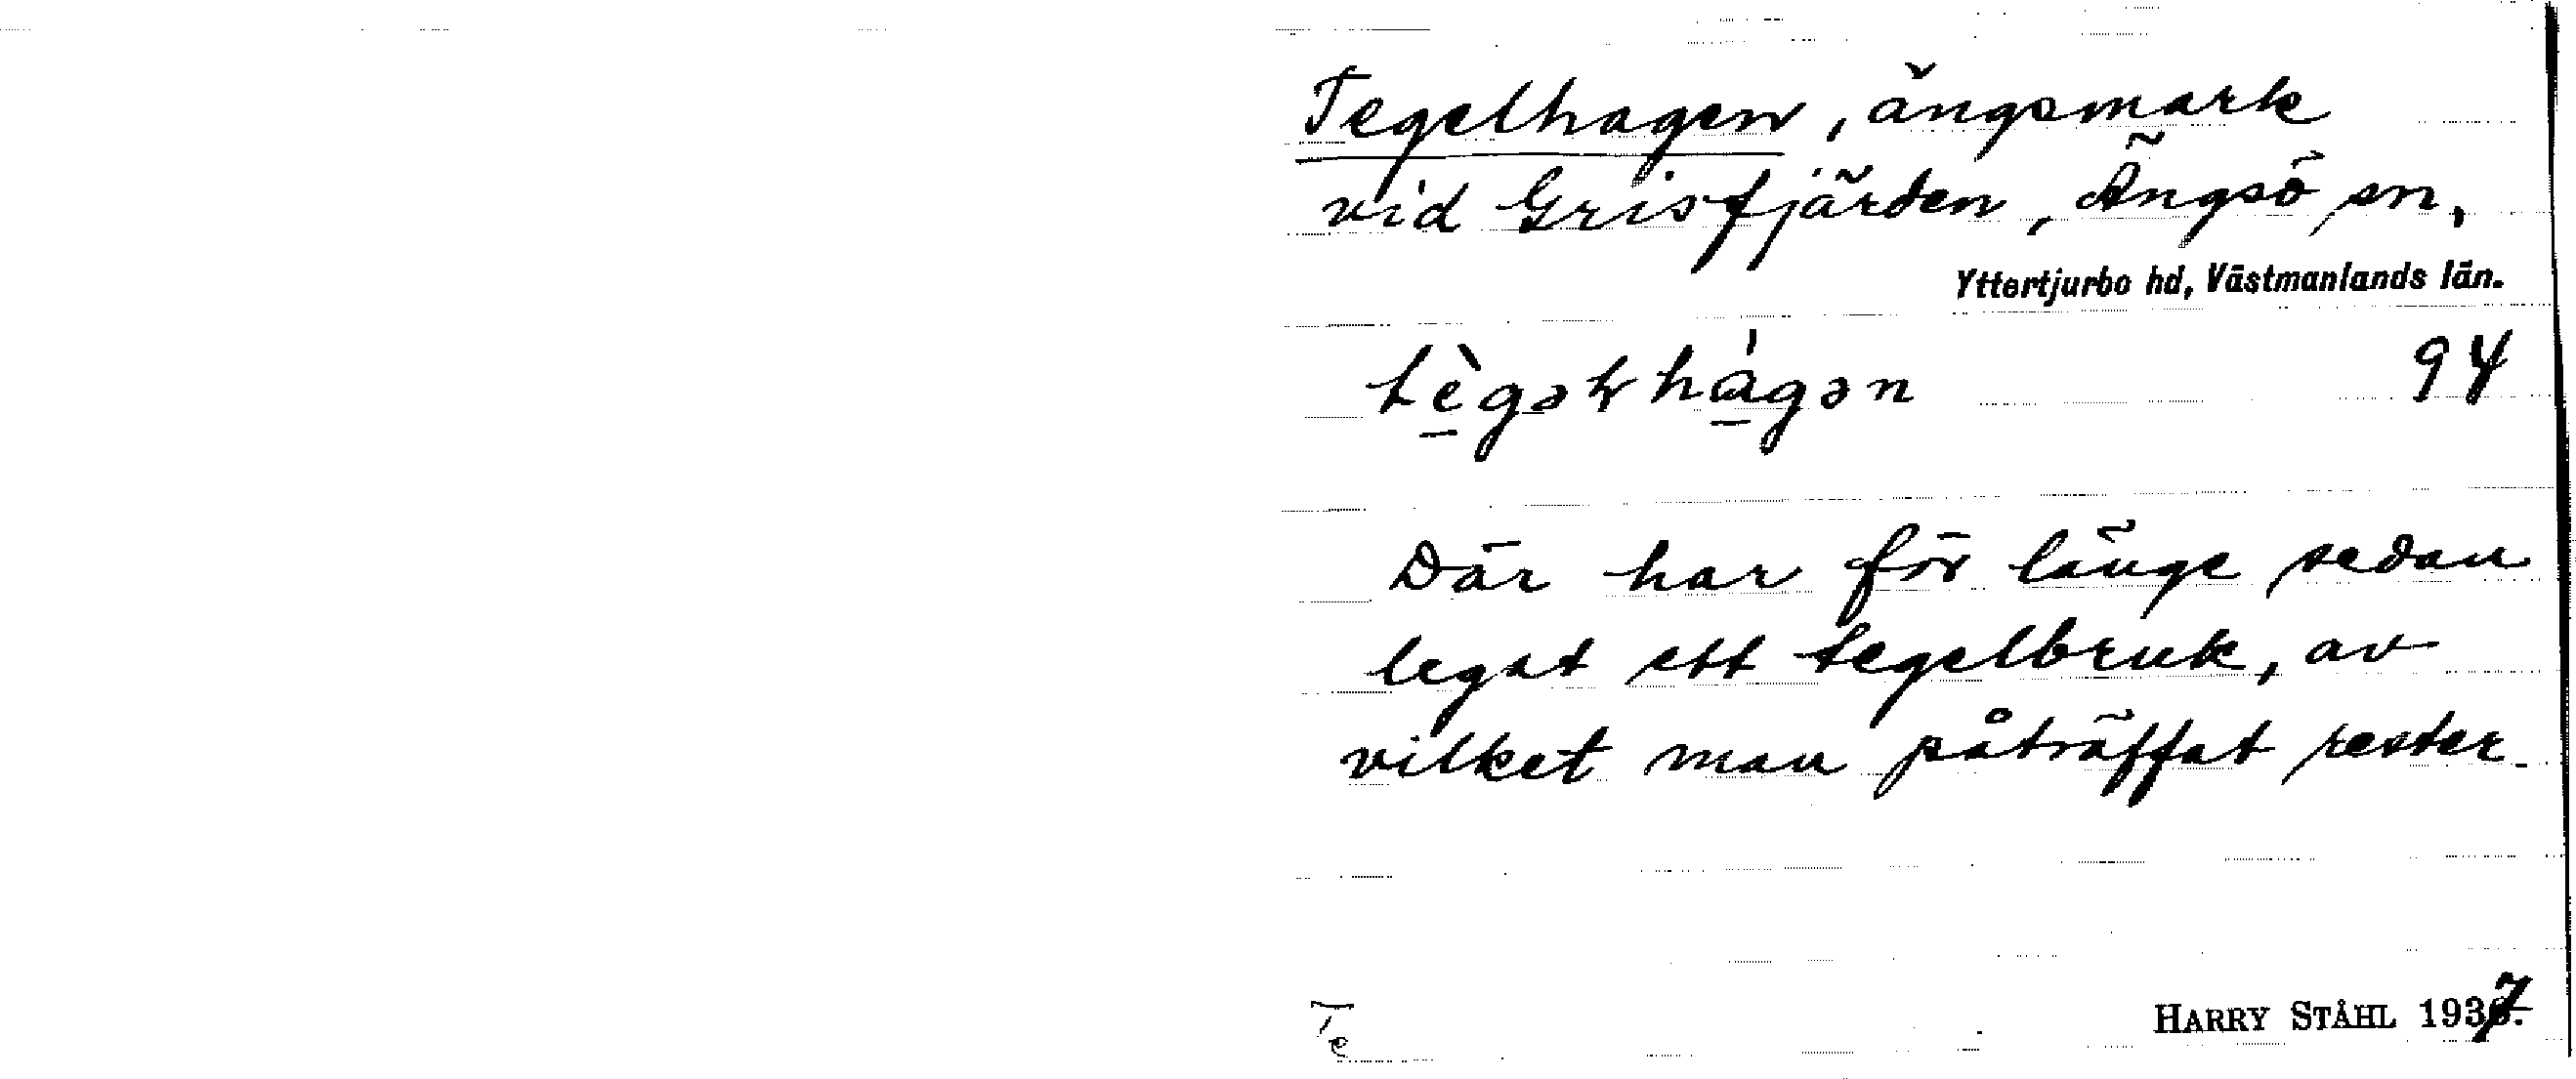 Tegelhagen, ängsmark
vid Grisfjärden, Ängsö sn,
Yttertjurbo hd, Västmanlands län.
94
Där har för länge sedan
legat ett tegelbruk, av
vilket man påträffat rester.
Te
HARRY STÅHL 1937.